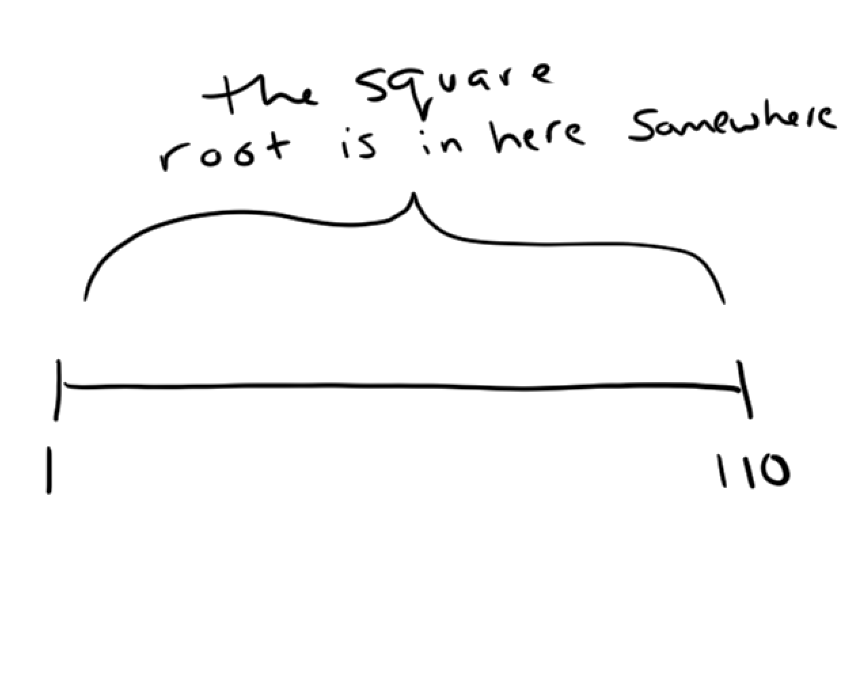 the square
root is in here somewhere
1
110